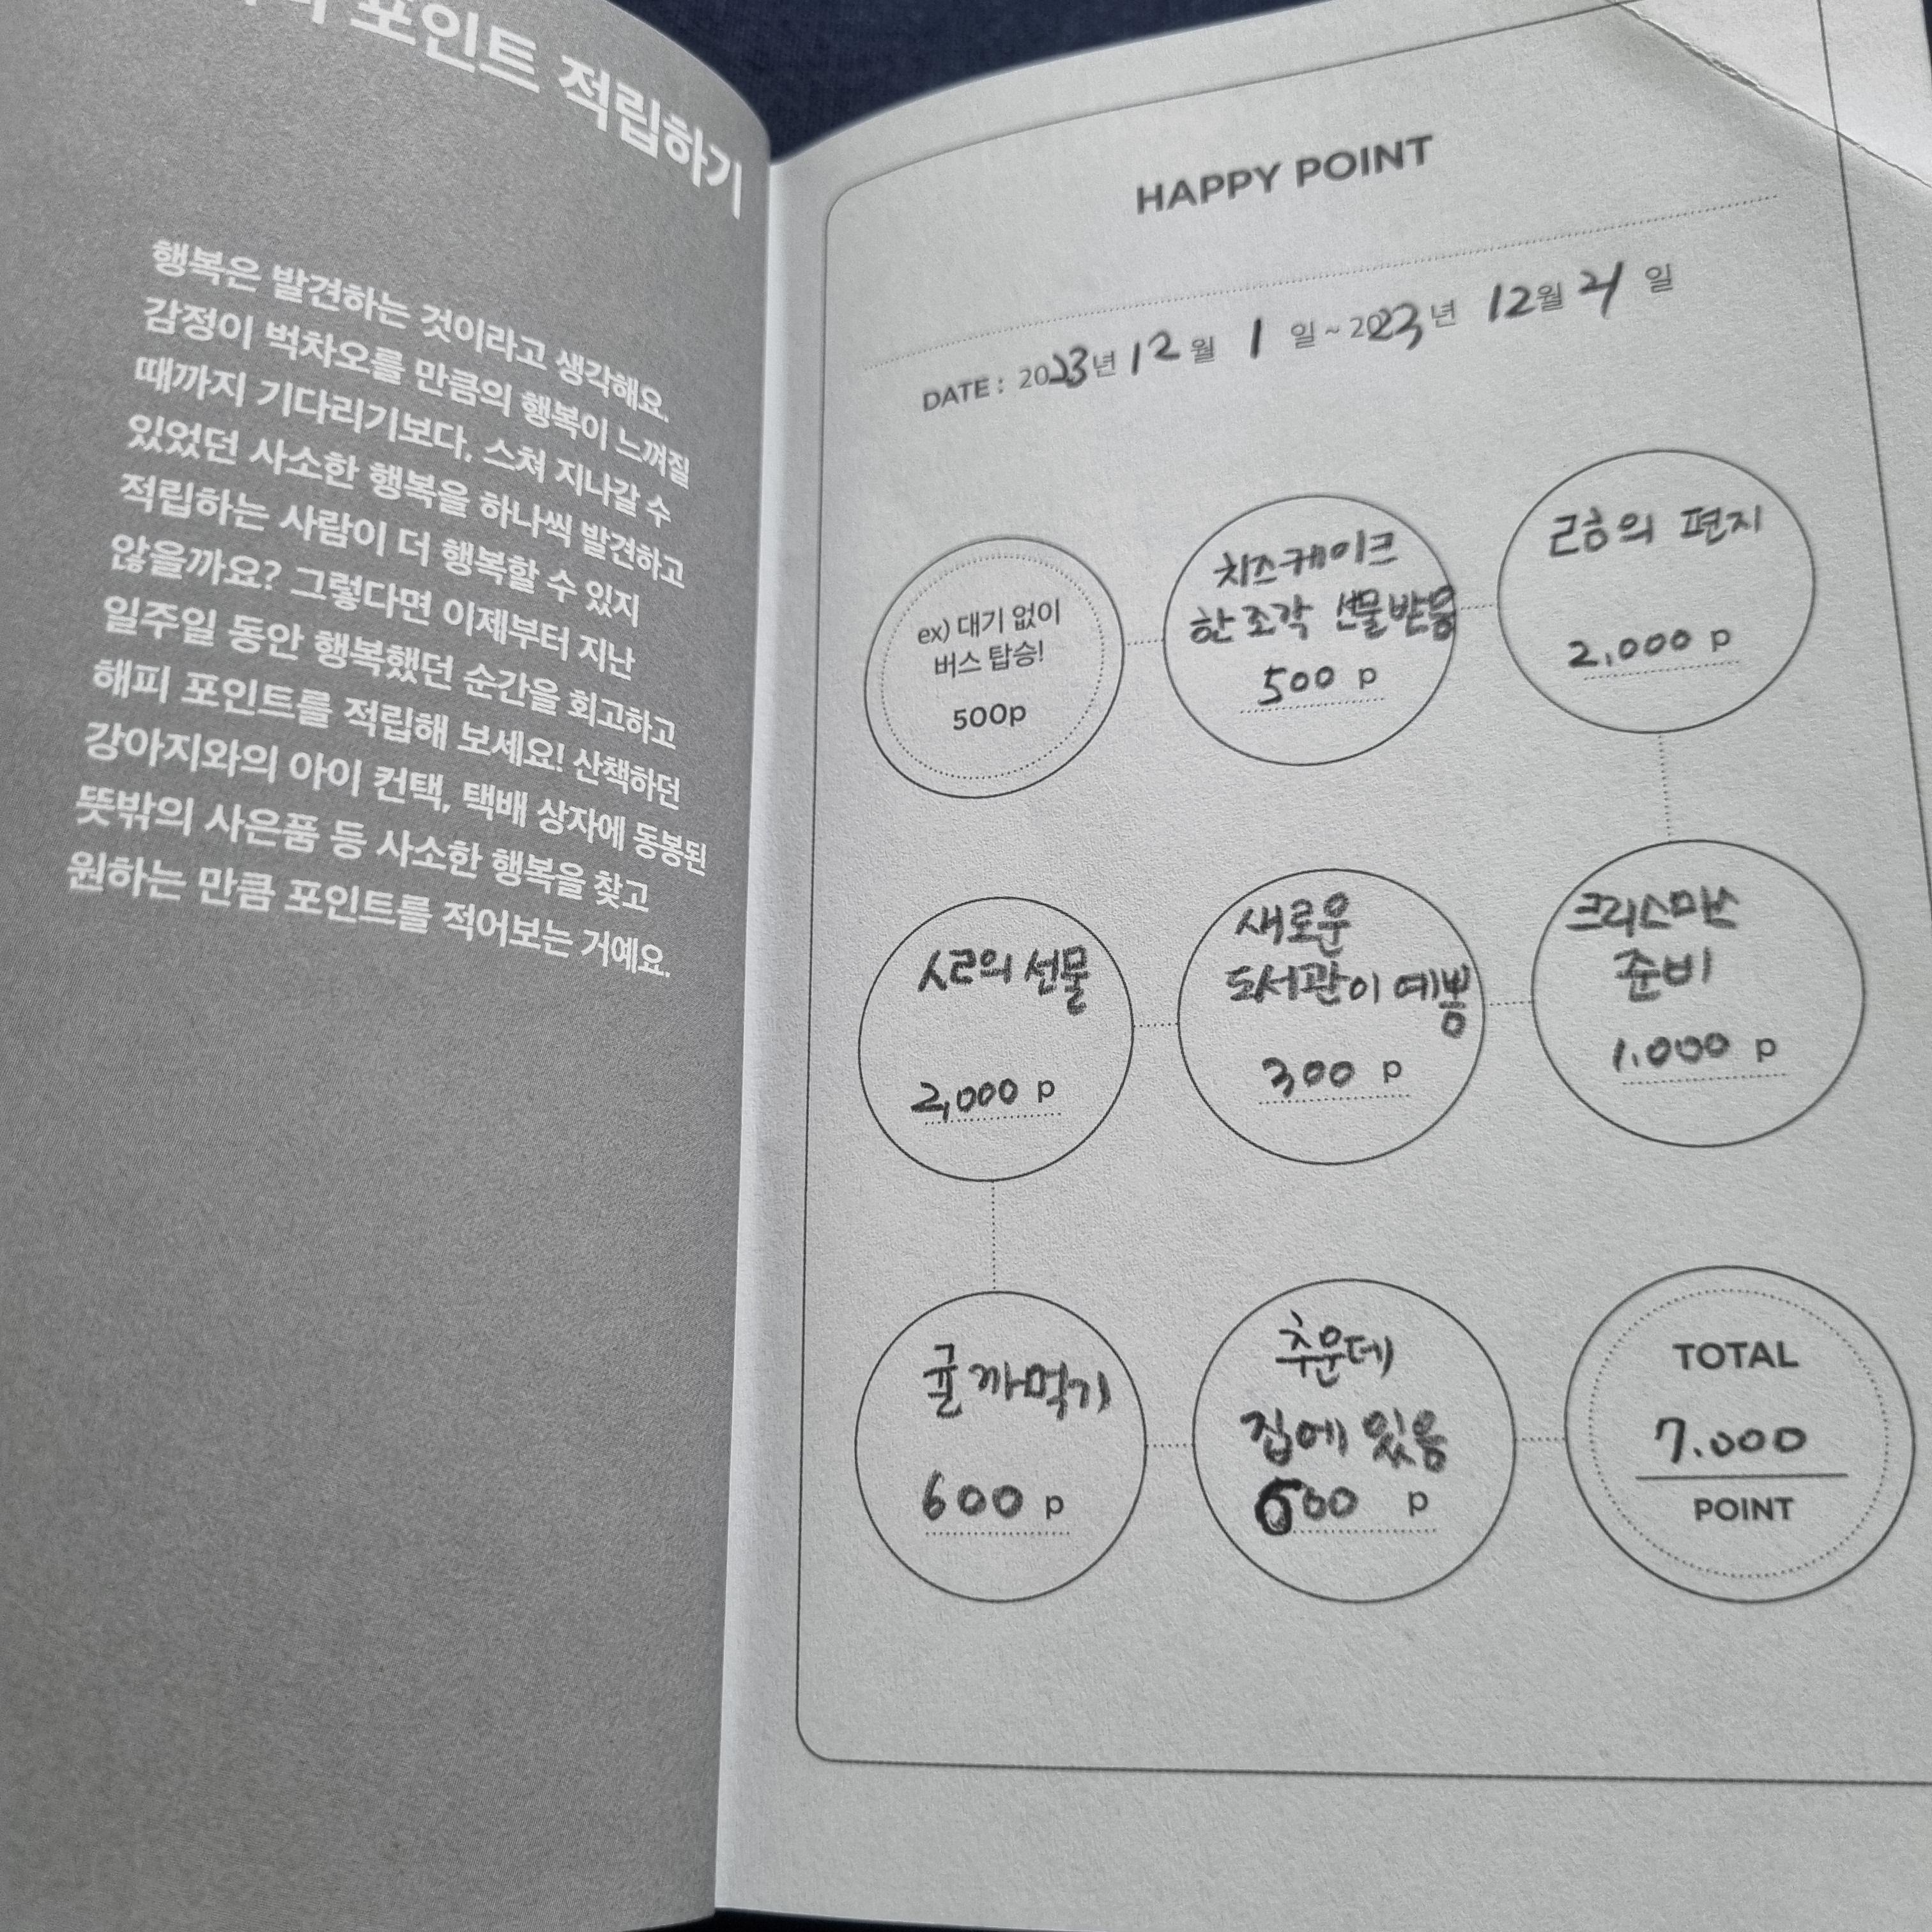 포인트 적립하기
행복은 발견하는 것이라고 생각해요.
감정이 벅차오를 만큼의 행복이 느껴질
때까지 기다리기보다, 스쳐 지나갈 수
있었던 사소한 행복을 하나씩 발견하고
적립하는 사람이 더 행복할 수 있지
않을까요? 그렇다면 이제부터 지난
일주일 동안 행복했던 순간을 회고하고
해피 포인트를 적립해 보세요! 산책하던
강아지와의 아이 컨택, 택배 상자에 동봉된
뜻밖의 사은품 등 사소한 행복을 찾고
원하는 만큼 포인트를 적어보는 거예요.
HAPPY POINT
DATE : 2023년 12월 1 일 ~ 2023년 12월 21 일
ex) 대기 없이
버스 탑승!
500p
치즈케이크
한 조각 선물받음
500 p
ㄹㅎ의 편지
2,000 p
크리스마스
준비
1.000 p
새로운
도서관이 예쁨
300 p
ㅅㄹ의 선물
2,000 p
귤 까먹기
600 p
추운데
집에 있음
600 p
TOTAL
7.000
POINT